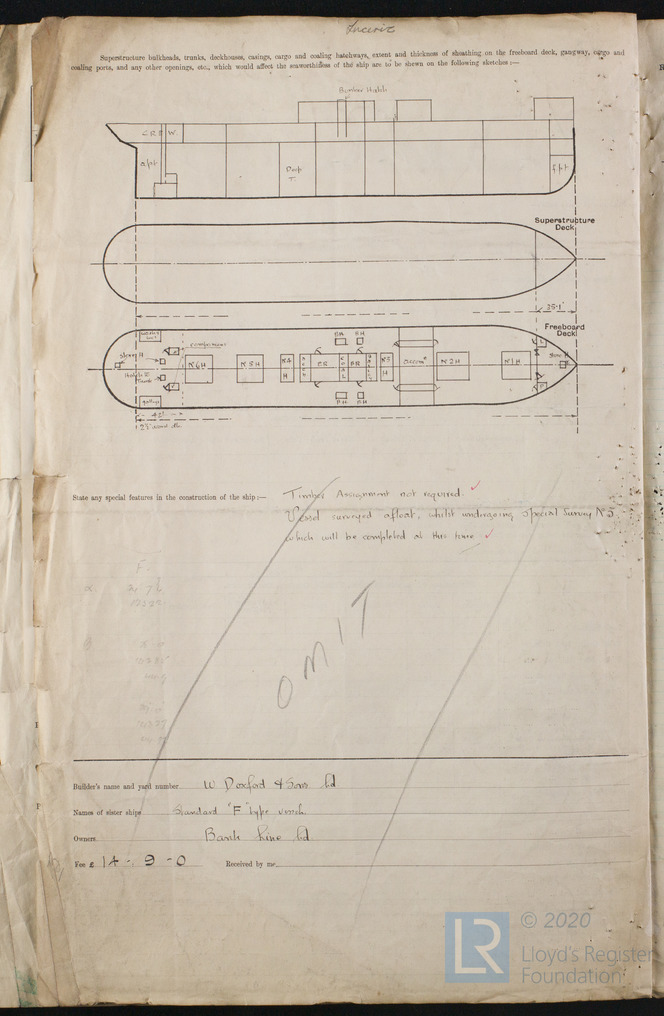 Luceric
Superstructure bulkheads, trunks, deckhouses, casings, cargo and coaling hatchways, extent and thickness of sheathing on the freeboard deck, gangway, cargo and
coaling ports, and any other openings, etc., which would affect the seaworthiness of the ship are to be shewn on the following sketches:—
Bunker Hatch
CREW
apt
Deep
T.
fpt
Superstructure
Deck
35·1'
Freeboard
Deck
companions
Store H
BH BH
N6H
N5H
N4
H
ER
COAL
BR
N3
H
Accomn
N2H
N1H
Store H
galley
BH BH
42'
State any special features in the construction of the ship:—
Timber Assignment not required.
Vessel surveyed afloat, whilst undergoing Special Survey No 3
which will be completed at this time
F.
OMIT
Builder's name and yard number
W Doxford & Sons Ld
Names of sister ships
Standard "F" type vessels
Owners
Bank Line Ld
Fee £ 14 - 9 - 0
Received by me
LR
© 2020
Lloyd's Register
Foundation